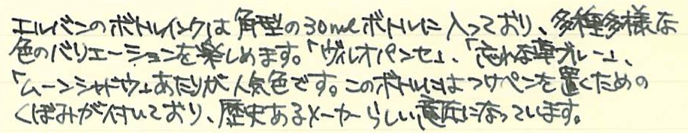 エルバンのボトルインクは角型の30mlボトルに入っており、多種多様な
色のバリエーションを楽しめます。「ヴィオレパンセ」、「忘れな草ブルー」、
「ムーンシャドウ」あたりが人気色です。このボトルにはつけペンを置くための
くぼみが付いており、歴史あるメーカーらしい意匠になっています。